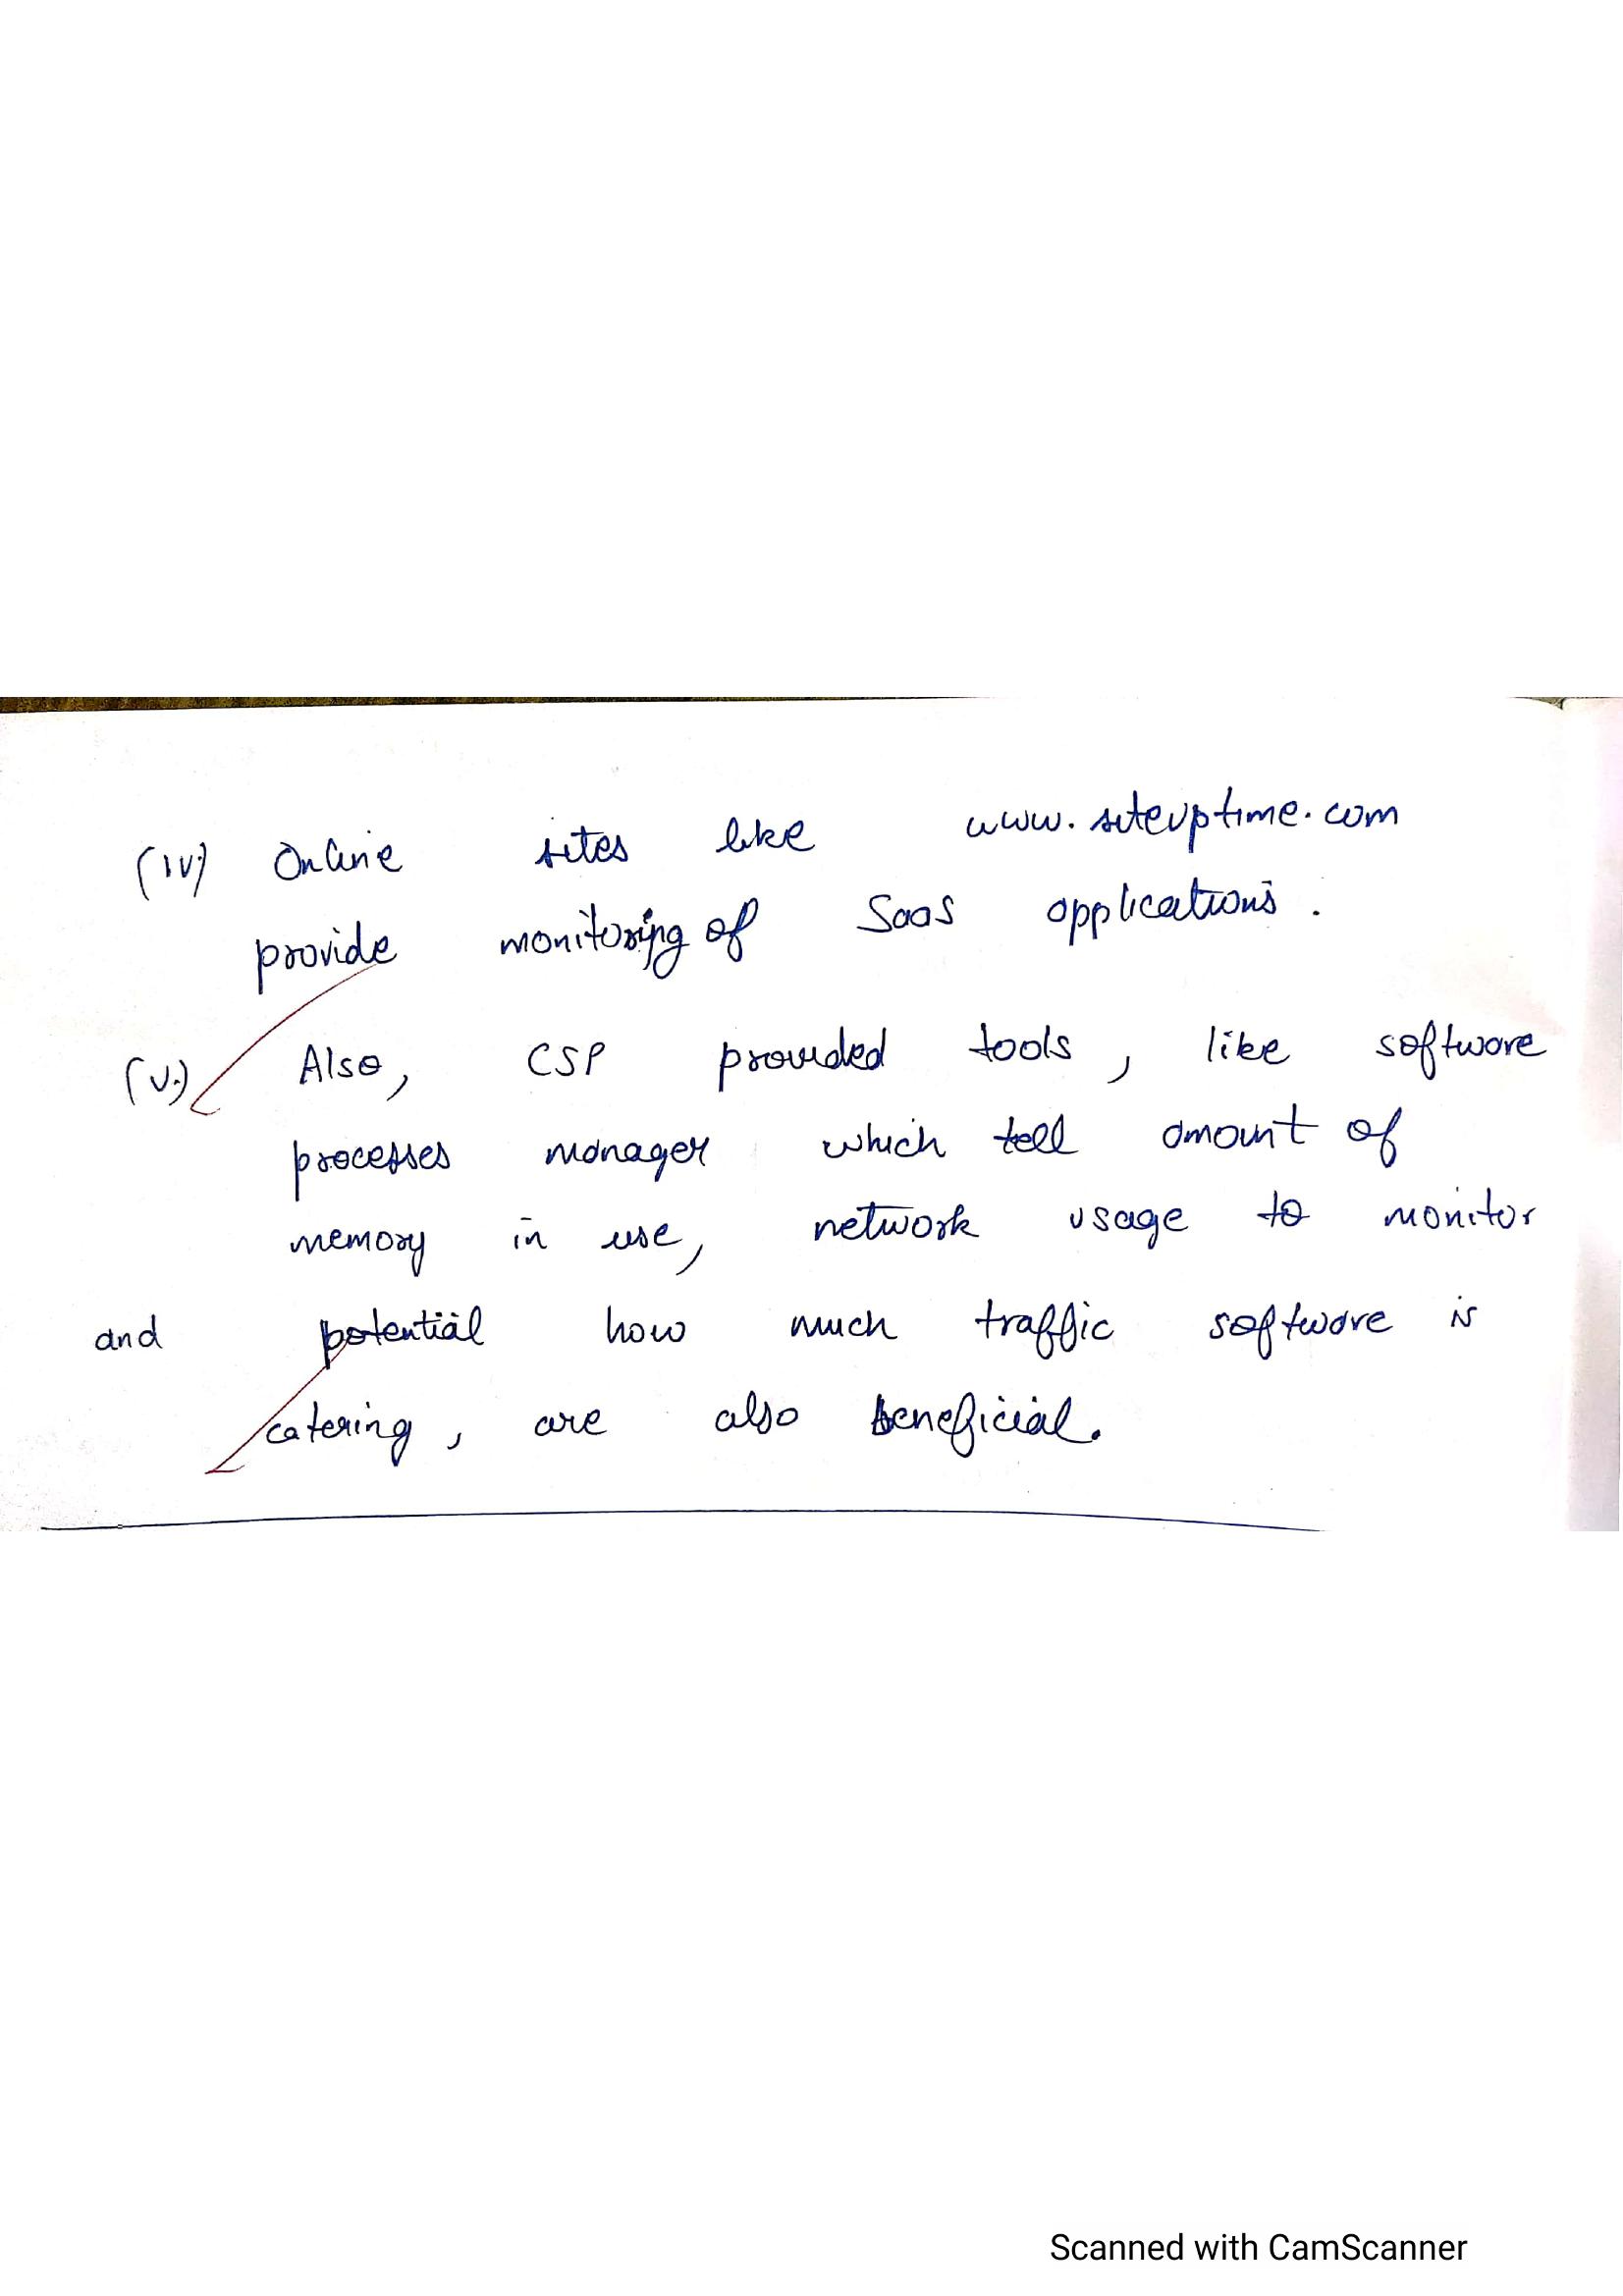 (iv) Online sites like www.siteuptime.com
provide monitoring of SaaS applications.
(v.) Also, CSP provided tools, like software
processes manager which tell amount of
memory in use, network usage to monitor
and potential how much traffic software is
catering, are also beneficial.
Scanned with CamScanner